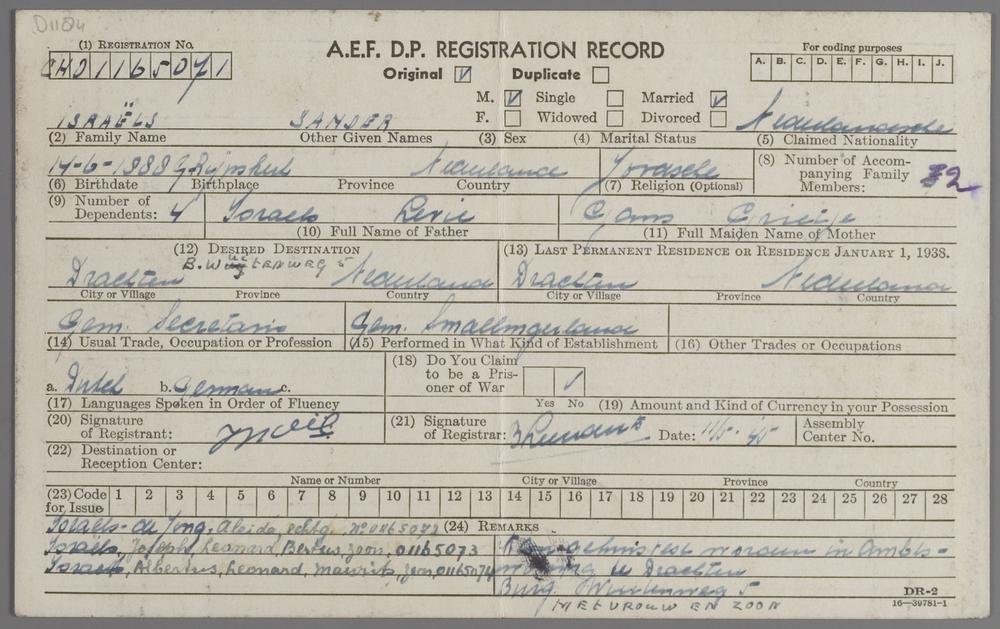 D1184
(1) REGISTRATION No.
A.E.F. D.P. REGISTRATION RECORD
For coding purposes
01165071
Original ☑ Duplicate ☐
A. B. C. D. E. F. G. H. I. J.
M. ☑ Single ☐ Married ☑
F. ☐ Widowed ☐ Divorced ☐
ISRAËLS SANDER Nederlandsche
(2) Family Name Other Given Names (3) Sex (4) Marital Status (5) Claimed Nationality
14-6-1888 Nederland Joodsche
(8) Number of Accompanying Family Members: 2
(6) Birthdate Birthplace Province Country (7) Religion (Optional)
(9) Number of Dependents: 4 Israels Levie Gans
(10) Full Name of Father (11) Full Maiden Name of Mother
(12) DESIRED DESTINATION (13) LAST PERMANENT RESIDENCE OR RESIDENCE JANUARY 1, 1938.
Drachten Nederland Drachten Nederland
City or Village Province Country City or Village Province Country
Gem. Secretaris Gem. Smallingerland
(14) Usual Trade, Occupation or Profession (15) Performed in What Kind of Establishment (16) Other Trades or Occupations
(18) Do You Claim to be a Prisoner of War
a. Dutch b. German c. Yes No ✓
(17) Languages Spoken in Order of Fluency (19) Amount and Kind of Currency in your Possession
(20) Signature of Registrant: (21) Signature of Registrar: Date: 11/5-'45 Assembly Center No.
(22) Destination or Reception Center:
Name or Number City or Village Province Country
(23) Code for Issue 1 2 3 4 5 6 7 8 9 10 11 12 13 14 15 16 17 18 19 20 21 22 23 24 25 26 27 28
Israels-de Jong, Aleida, echtg. No 01165072 (24) REMARKS
Israëls, Joseph, Leonard, Bertus, zoon, 01165073
Israels, Albertus, Leonard, Maurits, zoon, 01165074
worden in Ambts-
woning te Drachten
Burg. Wuiteweg 5
MET VROUW EN ZOON
DR-2
16—39781-1